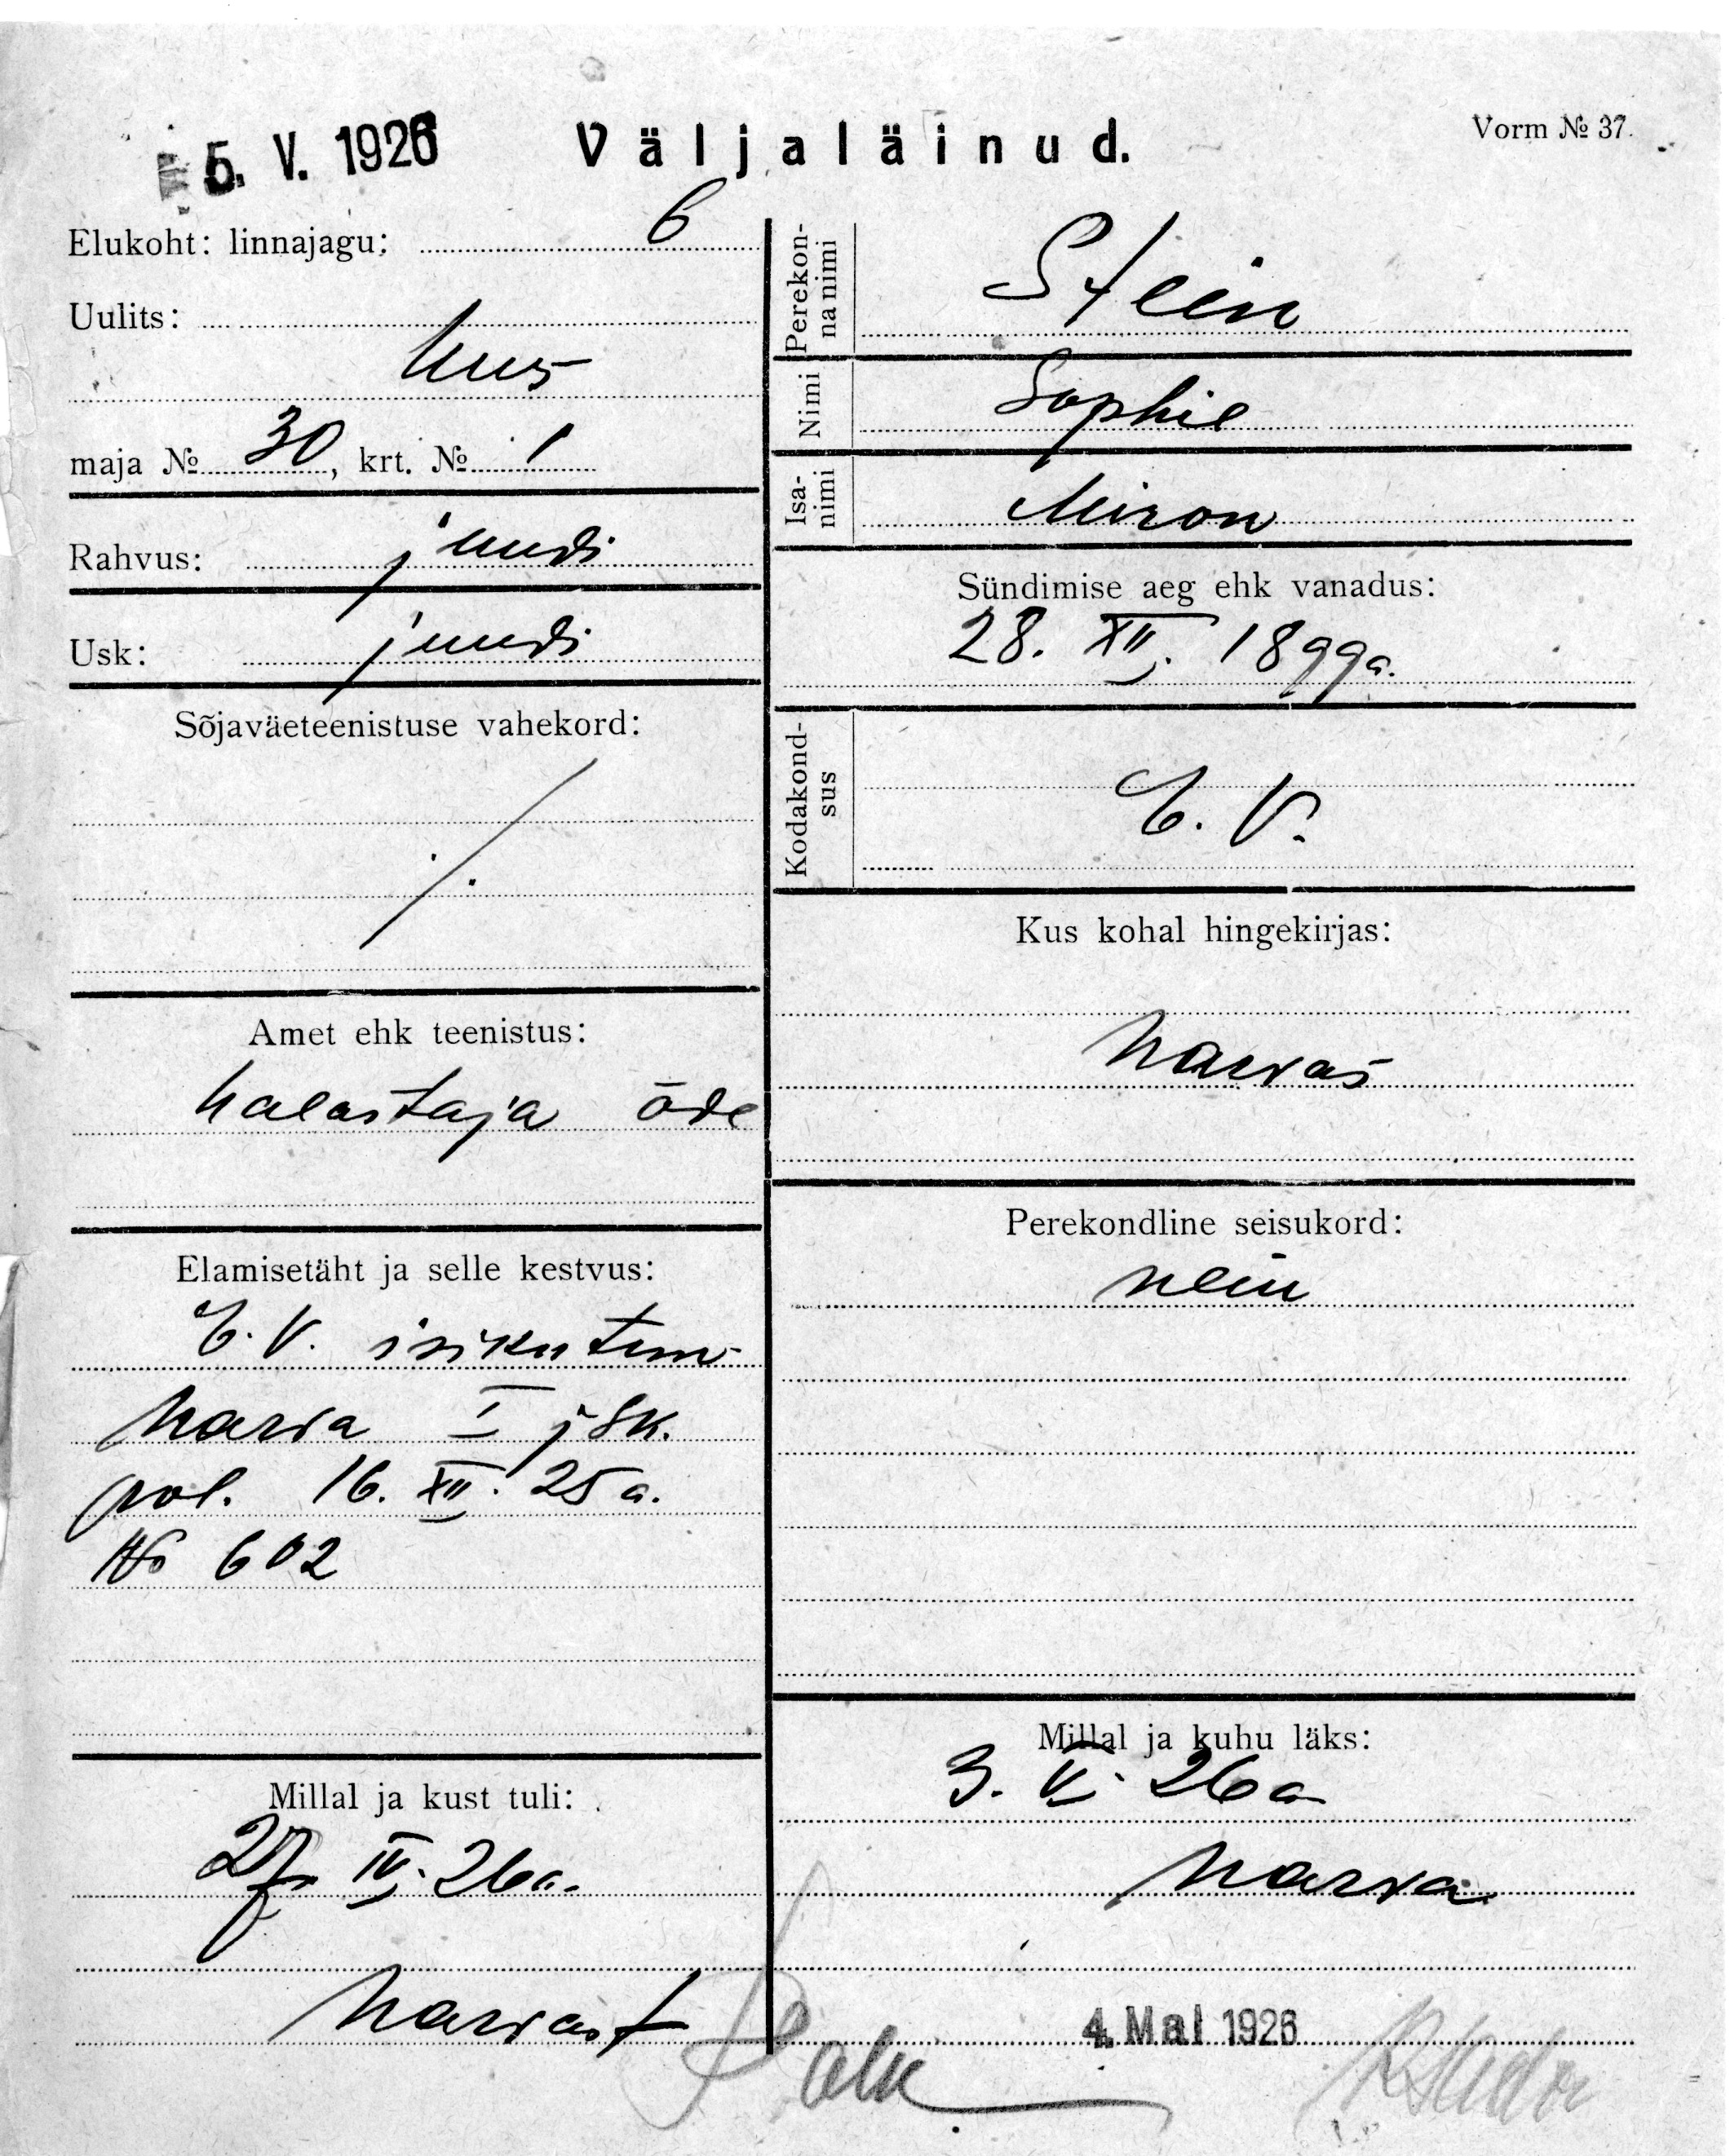 5. V. 1926
Väljaläinud.
Vorm № 37.
Elukoht: linnajagu: 6
Uulits:
Uus
maja № 30, krt. № 1
Rahvus: juudi
Usk: juudi
Sõjaväeteenistuse vahekord:
Amet ehk teenistus:
halastaja õde
Elamisetäht ja selle kestvus:
E.V. isikutun.
Narva I jsk.
pol. 16. XII. 25 a.
№ 602
Millal ja kust tuli:
27. IV. 26 a.
Narvast
Perekonna nimi
Stein
Nimi
Sophie
Isa-nimi
Miron
Sündimise aeg ehk vanadus:
28. XII. 1899 a.
Kodakond-sus
E. V.
Kus kohal hingekirjas:
Narvas
Perekondline seisukord:
neiu
Millal ja kuhu läks:
3. V. 26 a
Narva
4. Mai 1926